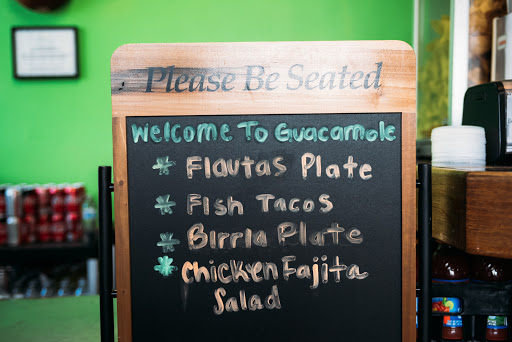 Please Be Seated
Welcome To Guacamole
Flautas Plate
Fish Tacos
Birria Plate
Chicken Fajita
Salad